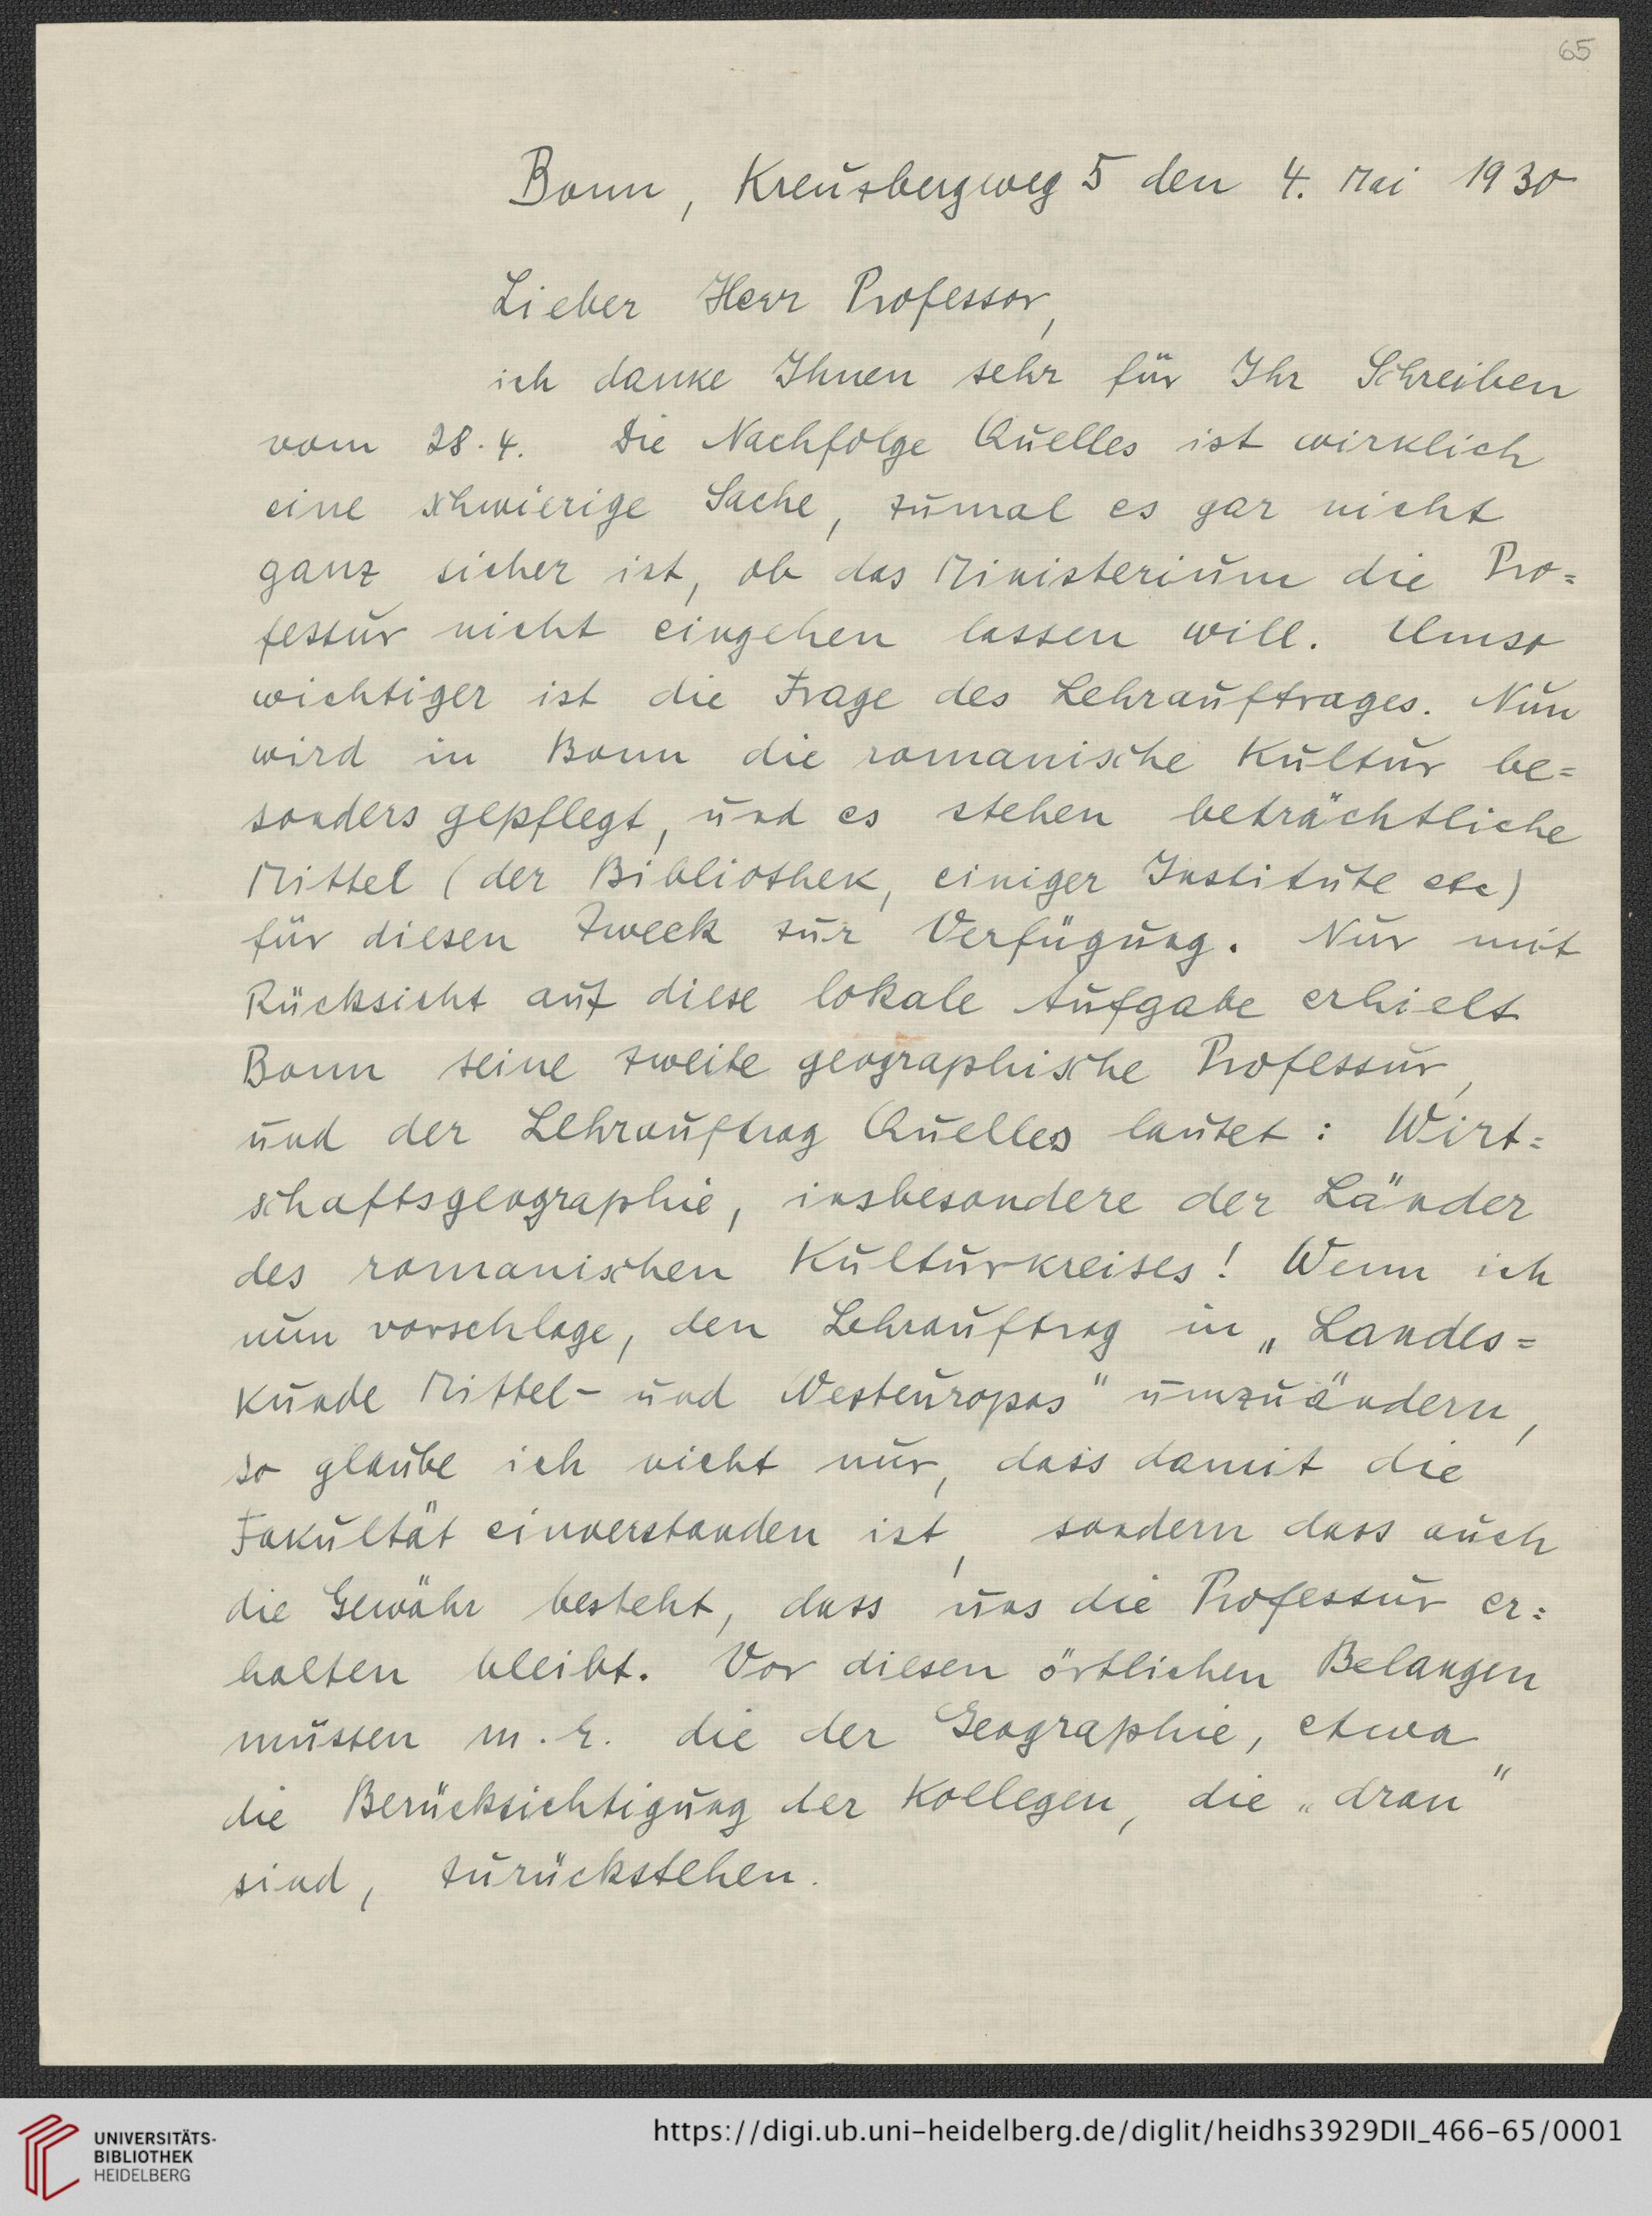 65
Bonn, Kreuzbergweg 5 den 4. Mai 1930
Lieber Herr Professor,
ich danke Ihnen sehr für Ihr Schreiben
vom 28.4. Die Nachfolge Quelles ist wirklich
eine schwierige Sache, zumal es gar nicht
ganz sicher ist, ob das Ministerium die Pro=
fessur nicht eingehen lassen will. Umso
wichtiger ist die Frage des Lehrauftrages. Nun
wird in Bonn die romanische Kultur be=
sonders gepflegt, und es stehen beträchtliche
Mittel (der Bibliothek, einiger Institute etc)
für diesen Zweck zur Verfügung. Nur mit
Rücksicht auf diese lokale Aufgabe erhielt
Bonn seine zweite geographische Professur,
und der Lehrauftrag Quelles lautet: Wirt=
schaftsgeographie, insbesondere der Länder
des romanischen Kulturkreises! Wenn ich
nun vorschlage, den Lehrauftrag in „Landes=
kunde Mittel- und Westeuropas" umzuändern,
so glaube ich nicht nur, dass damit die
Fakultät einverstanden ist, sondern dass auch
die Gewähr besteht, dass uns die Professur er=
halten bleibt. Vor diesen örtlichen Belangen
müssen m.E. die der Geographie, etwa
die Berücksichtigung der Kollegen, die „dran"
sind, zurückstehen.
UNIVERSITÄTS-
BIBLIOTHEK
HEIDELBERG
https://digi.ub.uni-heidelberg.de/diglit/heidhs3929DII_466-65/0001